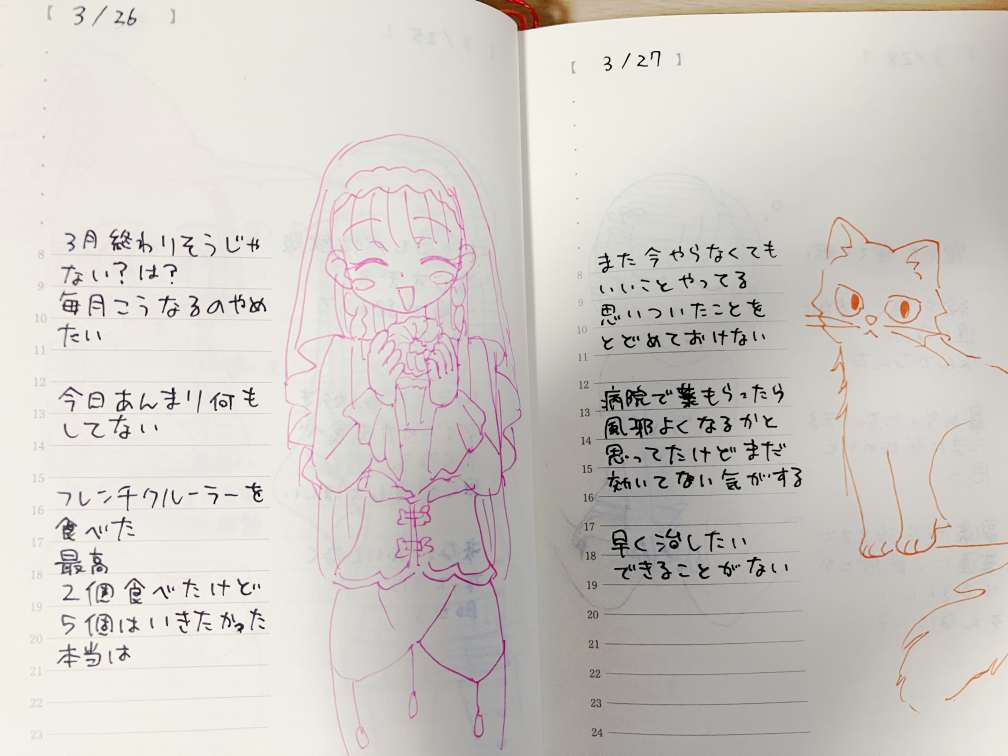 【 3/26 】
3月終わりそうじゃ
ない?は?
毎月こうなるのやめ
たい
今日あんまり何も
してない
フレンチクルーラーを
食べた
最高
2個食べたけど
5個はいきたかった
本当は
8
9
10
11
12
13
14
15
16
17
18
19
20
21
22
23
【 3/27 】
また今やらなくても
いいことやってる
思いついたことを
とどめておけない
病院で薬もらったら
風邪よくなるかと
思ってたけどまだ
効いてない気がする
早く治したい
できることがない
8
9
10
11
12
13
14
15
16
17
18
19
20
21
22
23
24